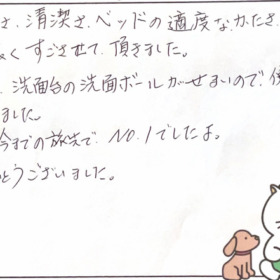 さ、清潔さ、ベッドの適度なかたさ
くすごさせて頂きました。
洗面台の洗面ボールがせまいので、使
ました。
今までの旅先で、NO.1でしたよ。
とうございました。